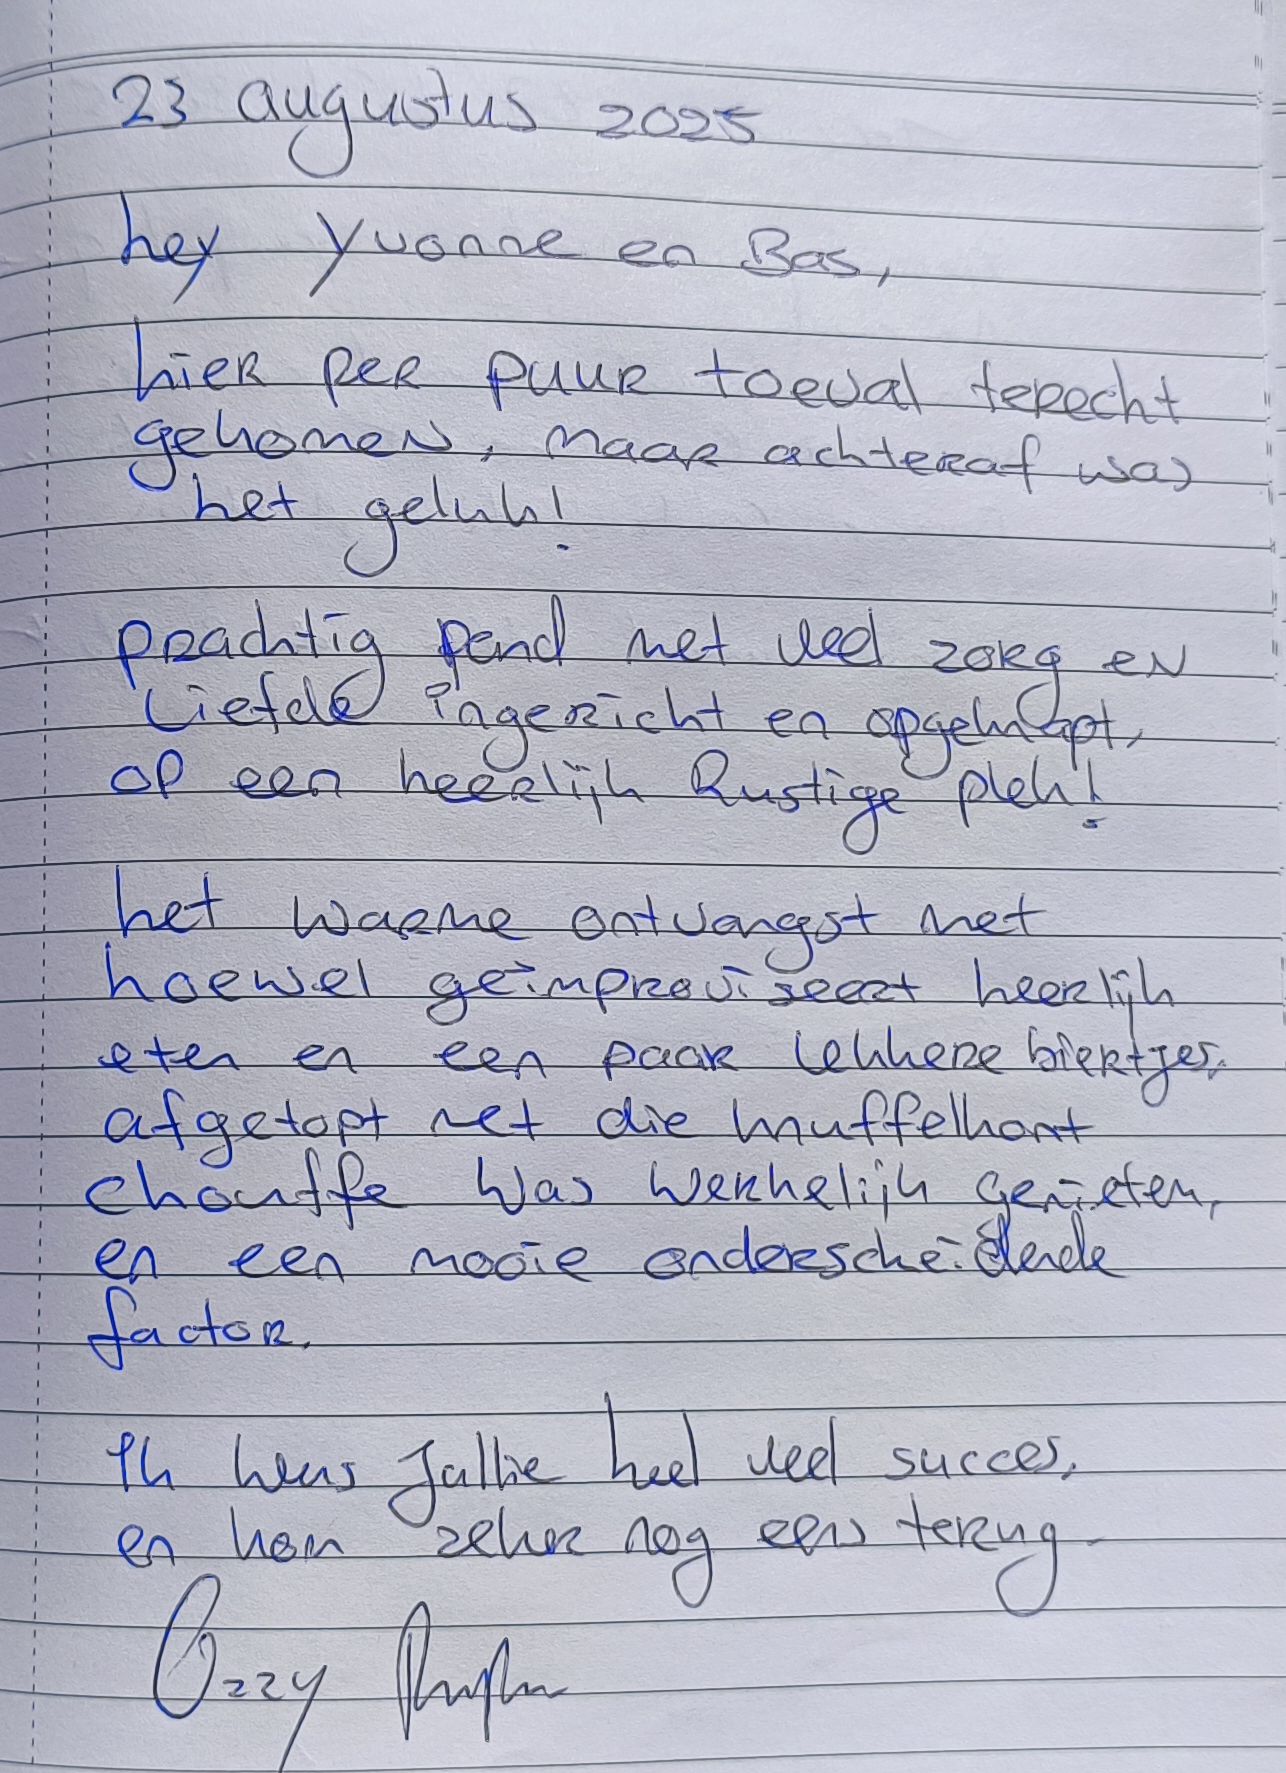 23 augustus 2025
hey Yvonne en Bas,
hier per puur toeval terecht
gekomen, maar achteraf was
het geluk!
prachtig pand met veel zorg en
Liefde ingericht en opgeknapt,
op een heerlijk Rustige plek!
het warme ontvangst met
hoewel geïmproviseert heerlijk
eten en een paar lekkere biertjes,
afgetopt met die knuffelkont
chouffe was werkelijk genieten,
en een mooie onderscheidende
factor.
Ik wens jullie heel veel succes,
en kom zeker nog eens terug
Ozzy